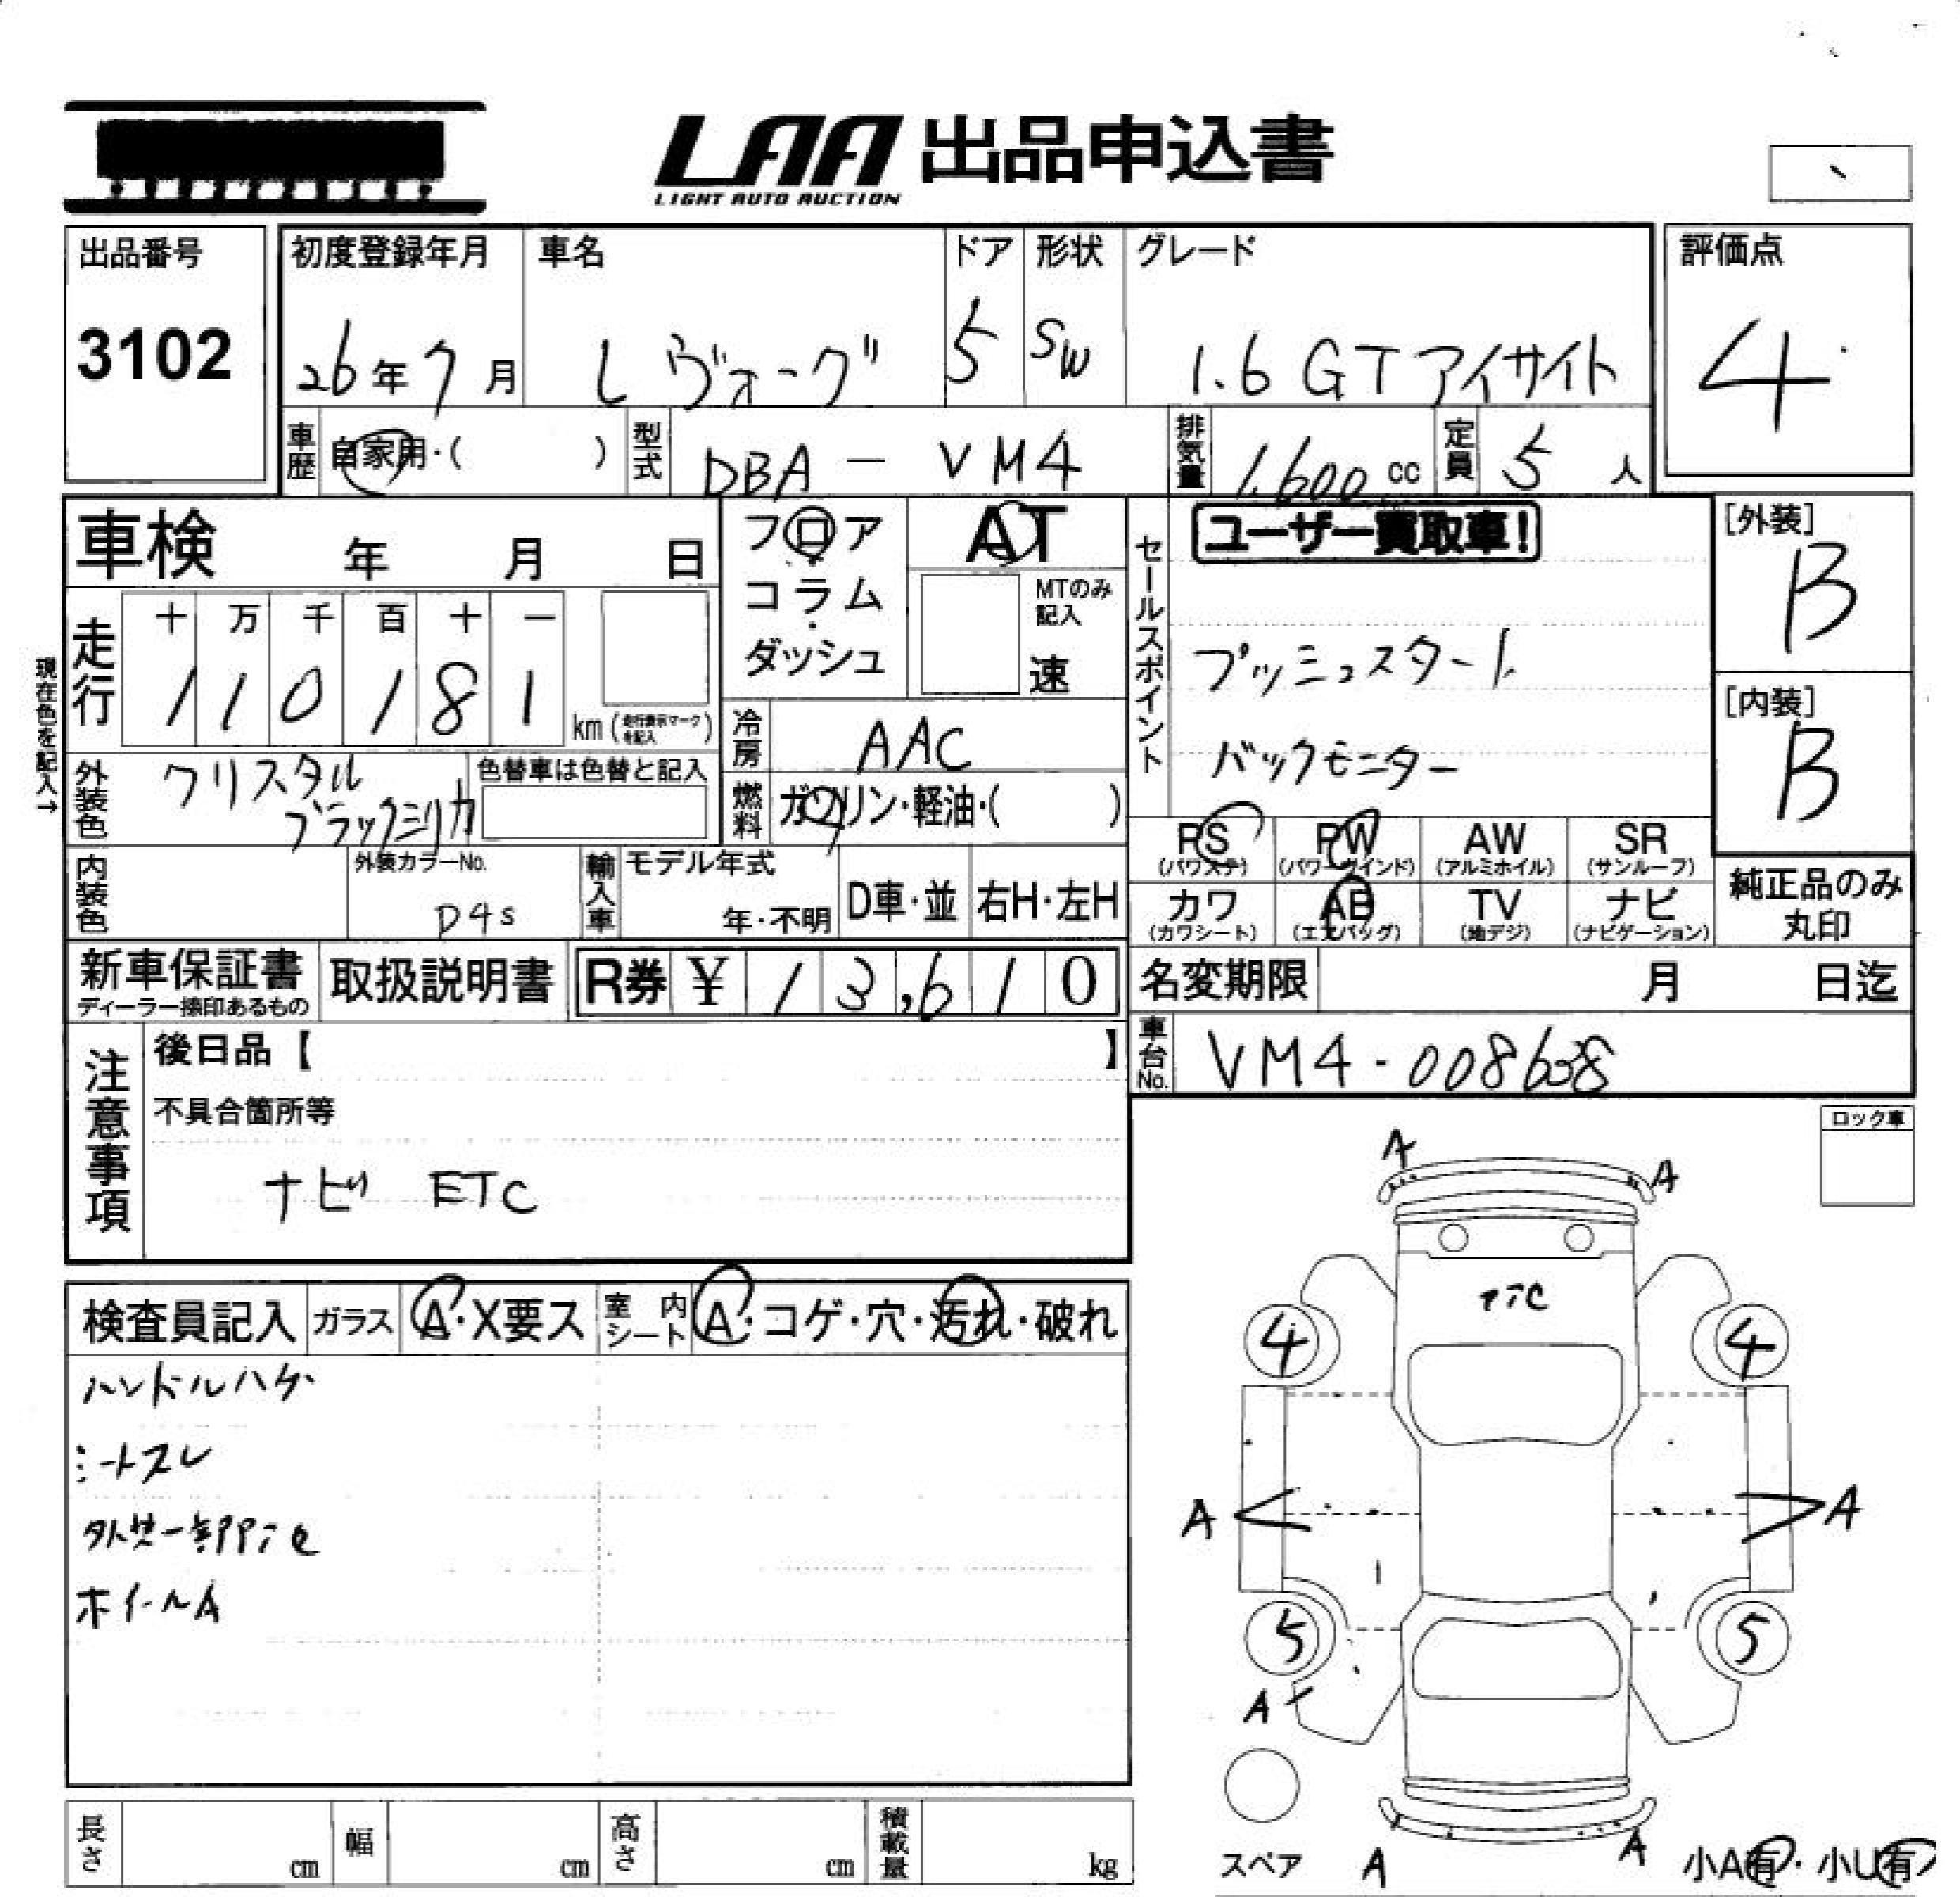 LAA 出品申込書
LIGHT AUTO AUCTION
出品番号
3102
初度登録年月
26年7月
車名
レヴォーグ
ドア
5
形状
SW
グレード
1.6 GT アイサイト
評価点
4
車歴
自家用・( )
型式
DBA - VM4
排気量
1,600 cc
定員
5 人
車検 年 月 日
フロア
コラム
ダッシュ
AT
MTのみ記入
速
セールスポイント
ユーザー買取車!
プッシュスタート
バックモニター
[外装]
B
[内装]
B
現在色を記入→
走行
十 万 千 百 十 一
1 1 0 1 8 1
km (走行表示マークを記入)
冷房
AAC
外装色
クリスタル
ブラックシリカ
色替車は色替と記入
燃料
ガソリン・軽油・( )
PS (パワステ)
PW (パワーウインド)
AW (アルミホイル)
SR (サンルーフ)
カワ (カワシート)
AB (エアバッグ)
TV (地デジ)
ナビ (ナビゲーション)
純正品のみ
丸印
内装色
外装カラーNo.
D4S
輸入車
モデル年式
年・不明
D車・並
右H・左H
新車保証書
ディーラー捺印あるもの
取扱説明書
R券 ¥ 13,610
名変期限 月 日迄
車台No.
VM4-008638
注意事項
後日品【 】
不具合箇所等
ナビ ETC
ロック車
検査員記入
ガラス
A・X要ス
室内シート
A・コゲ・穴・汚れ・破れ
ハンドルハゲ
シートスレ
外装一部
ホイールA
A
A
4
4
A
A
5
5
A
スペア
A
A
小A有・小U有
長さ cm
幅 cm
高さ cm
積載量 kg